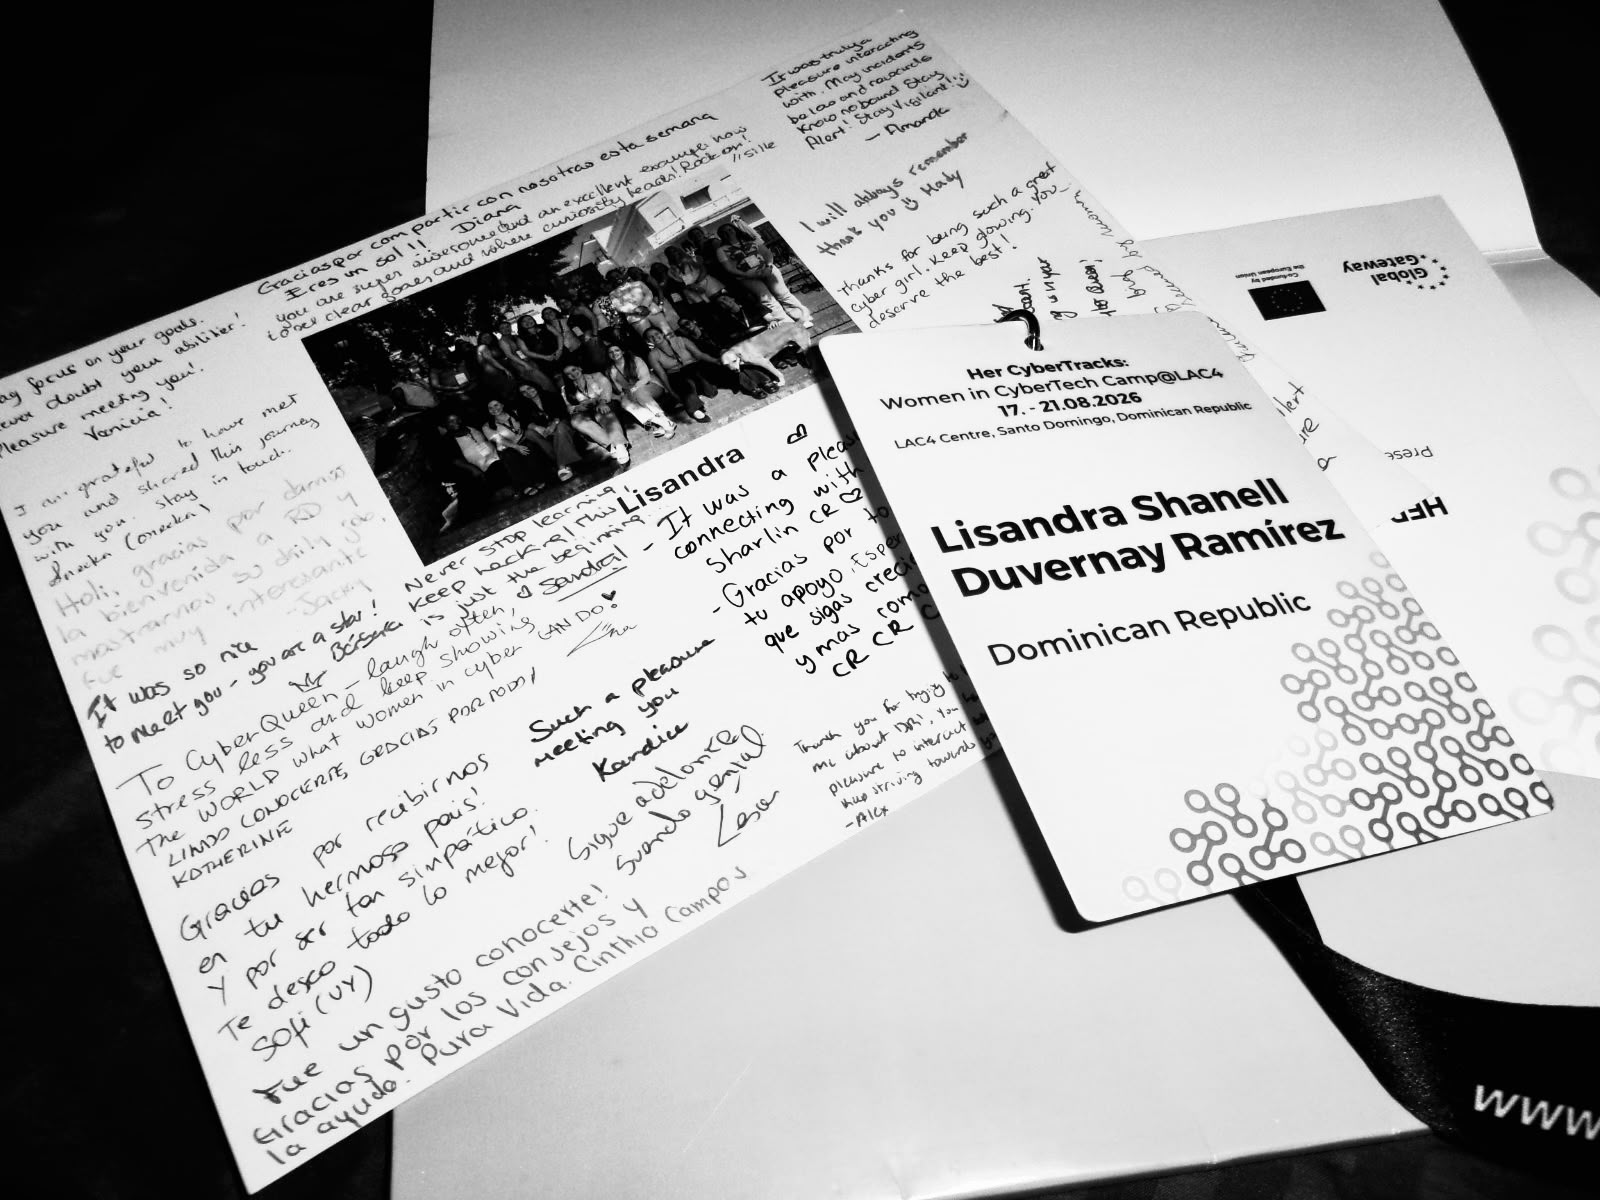 Gracias por compartir con nosotras esta semana
Eres un sol !! Diana
you are super awesome and an excellent example how
to set clear goals and where curiosity leads! Rock on!
focus on your goals.
never doubt your abilities!
Pleasure meeting you!
I am grateful to have met
you and shared this journey
with you. Stay in touch.
Holi, gracias por darnos
la bienvenida a RD y
mostrarnos su daily job,
fue muy interesante
-Jacky
It was so nice
to meet you - you are a star!
Bárbara
To CyberQueen - laugh often,
stress less and keep showing
The WORLD what women in cyber CAN DO!
LINDO CONOCERTE, GRACIAS POR TODO!
KATHERINE
Gracias por recibirnos
en tu hermoso pais!
Y por ser tan simpático.
Te deseo todo lo mejor!
Sofi (UY)
Fue un gusto conocerte!
Gracias por los consejos y
la ayuda. Pura Vida. Cinthia Campos
Lisandra
Never stop learning,
keep hacking! This
is just the beginning...
Sandra!
- It was a
connecting with
Sharlin CR
- Gracias por
tu apoyo.
que sigas
y mas como
CR CR
Such a pleasure
meeting you
Kandice
Sigue adelante
Thank you for trying to
me about DR!
pleasure to interact
Keep striving towards
-Alex
It was truly a
pleasure interacting
with. May incidents
be low and rewards
know no bound. Stay
Alert! Stay Vigilant!
— Amanda
I will always remember
thank you Mady
Thanks for being such a great
cyber girl. Keep glowing. You
deserve the best!
Her CyberTracks:
Women in CyberTech Camp@LAC4
17. - 21.08.2026
LAC4 Centre, Santo Domingo, Dominican Republic
Lisandra Shanell
Duvernay Ramírez
Dominican Republic
Global
Gateway
Co-funded by
the European Union
www.